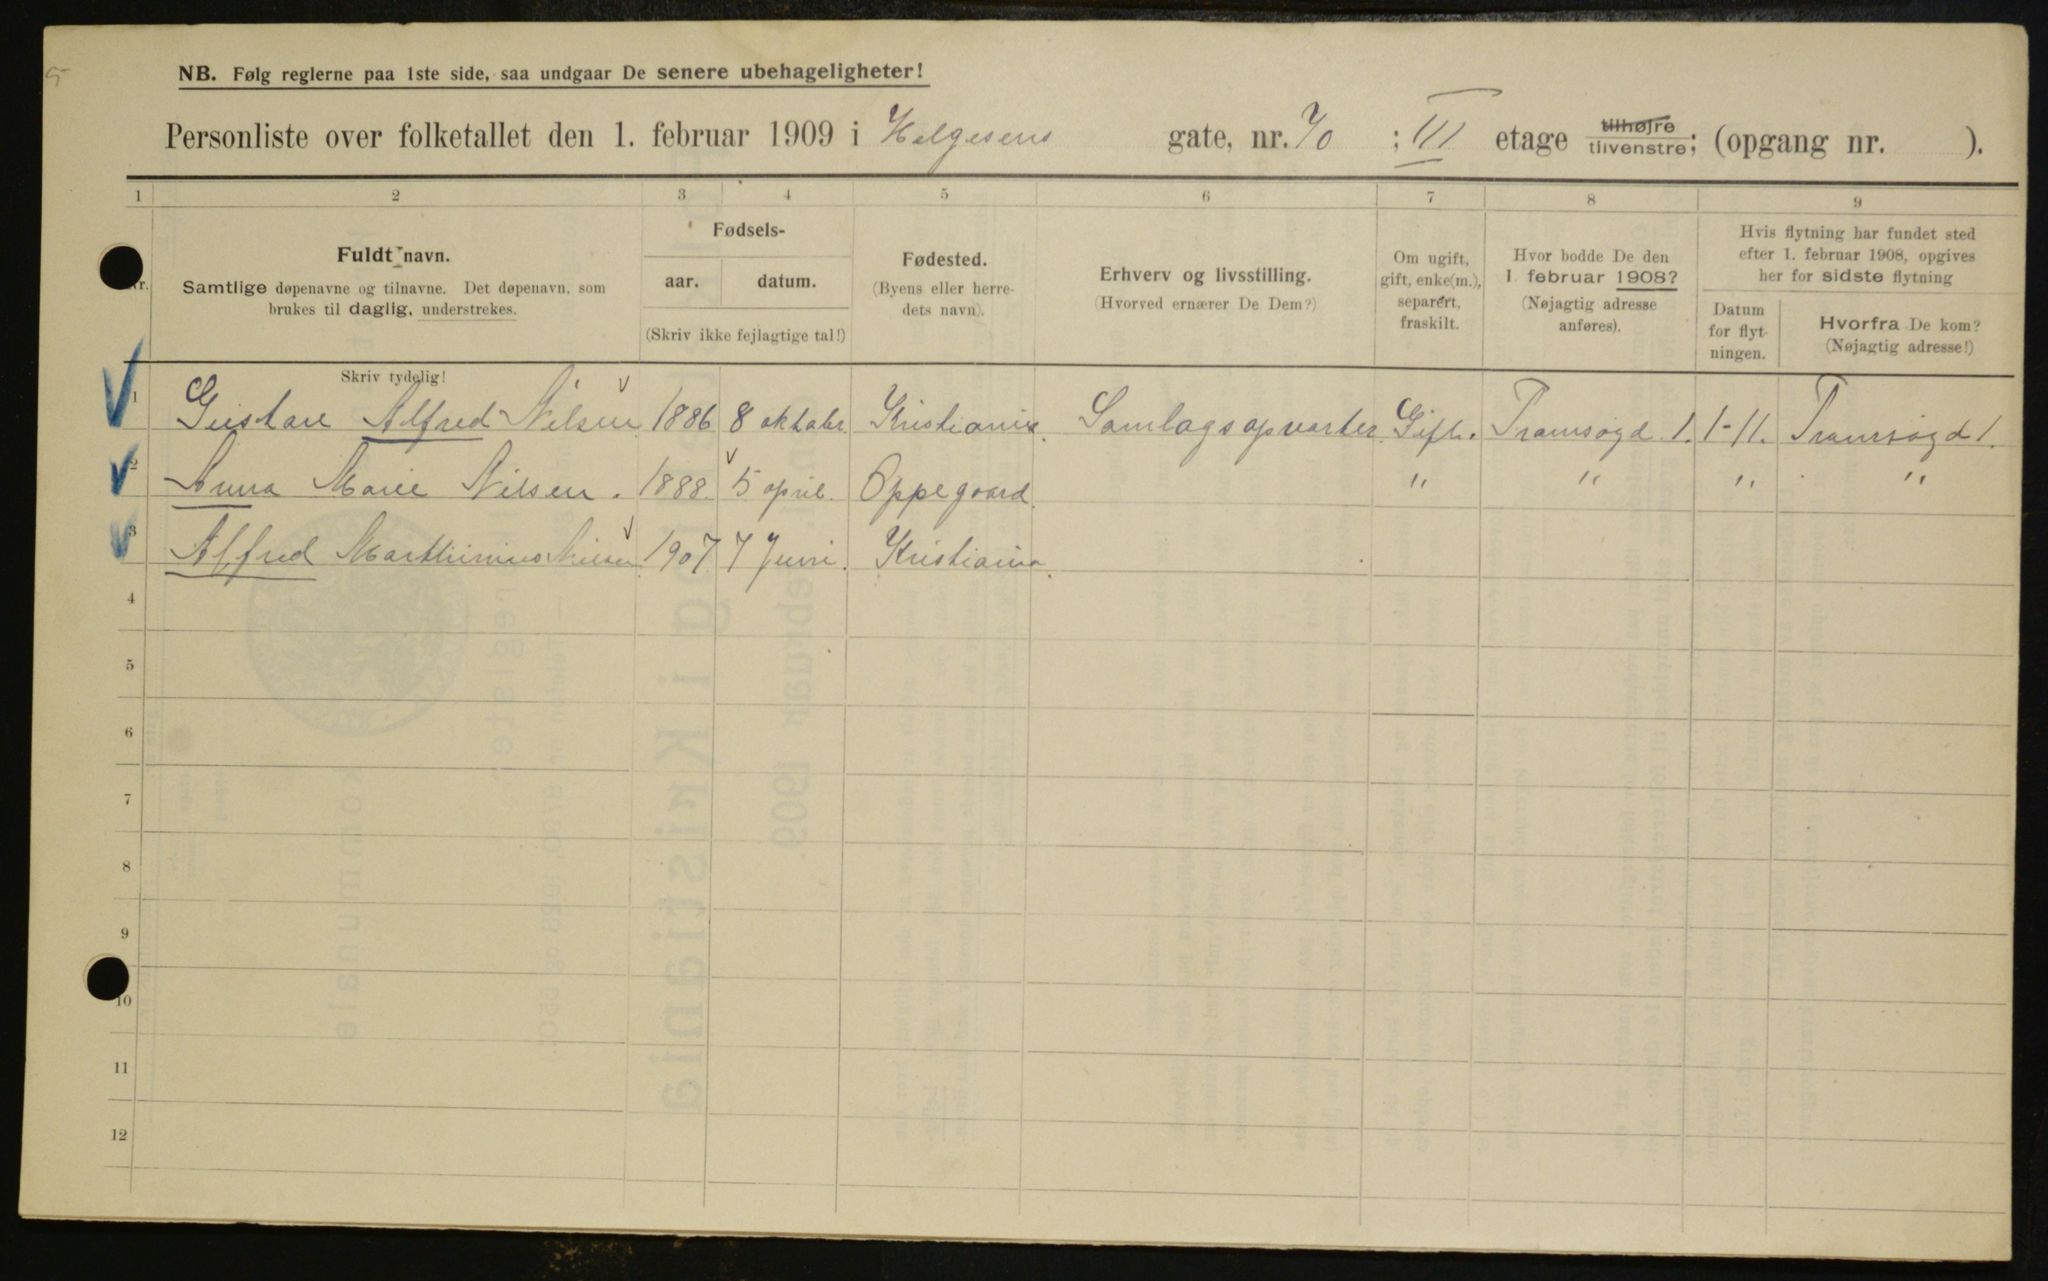 NB. Følg reglerne paa 1ste side, saa undgaar De senere ubehageligheter!
Personliste over folketallet den 1. februar 1909 i Helgesens gate, nr. 70 ; III etage tilhøjre tilvenstre; (opgang nr. ).
1 2 3 4 5 6 7 8 9
Nr.
Fuldt navn.
Samtlige døpenavne og tilnavne. Det døpenavn, som
brukes til daglig, understrekes.
Skriv tydelig!
Fødsels-
aar. datum.
(Skriv ikke fejlagtige tal!)
Fødested.
(Byens eller herre-
dets navn).
Erhverv og livsstilling.
(Hvorved ernærer De Dem?)
Om ugift,
gift, enke(m.),
separert,
fraskilt.
Hvor bodde De den
1. februar 1908?
(Nøjagtig adresse
anføres).
Hvis flytning har fundet sted
efter 1. februar 1908, opgives
her for sidste flytning
Datum
for flyt-
ningen.
Hvorfra De kom?
(Nøjagtig adresse!)
1 Gustave Alfred Nilsen 1886 8 oktobr. Kristiania. Samlagsopvarter Gift. Tramsøgd. 1. 1-11. Tramsøgd 1.
2 Anna Marie Nilsen. 1888. 5 april. Oppegaard. " " " "
3 Alfred Marthinius Nilsen 1907. 7 Juni. Kristiania.
4
5
6
7
8
9
10
11
12